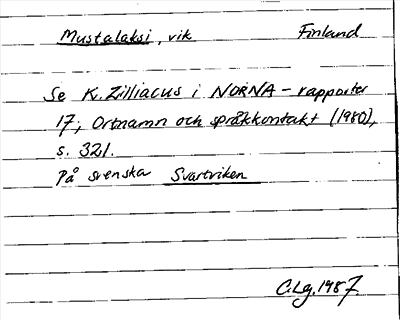 Mustalaksi, vik Finland
Se K. Zilliacus i NORNA-rapporter
17; Ortnamn och språkkontakt (1980),
s. 321.
På svenska Svartviken
C.Lg. 1987.